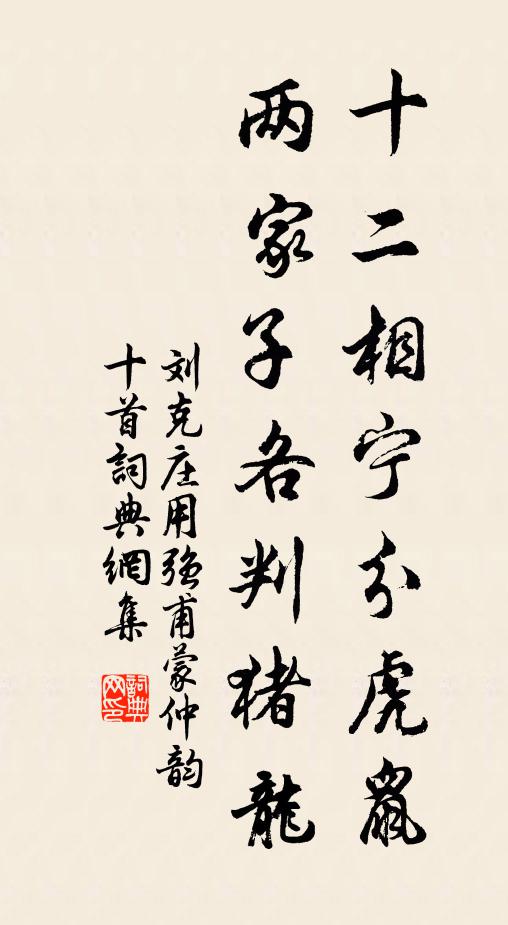 十二相宁分虎鼠
两家子各判猪龍
刘克庄用强甫蒙仲韵
十首詞典網集
詞典網印